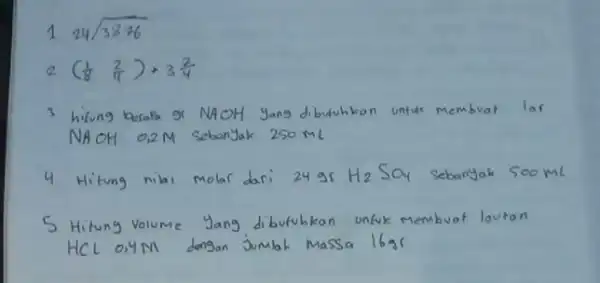 1 24/3876
2 (1/8 2/4) + 3 2/4
3 hitung berata gr NAOH yang dibutuhkan untuk membuat lar
NA OH 0,2 M sebanyak 250 mL
4 Hitung nilai molar dari 24 gr H2 SO4 sebanyak 500 mL
5 Hitung Volume yang dibutuhkan untuk membuat loutan
HCL 0,4 M dengan jumlah massa 16gr